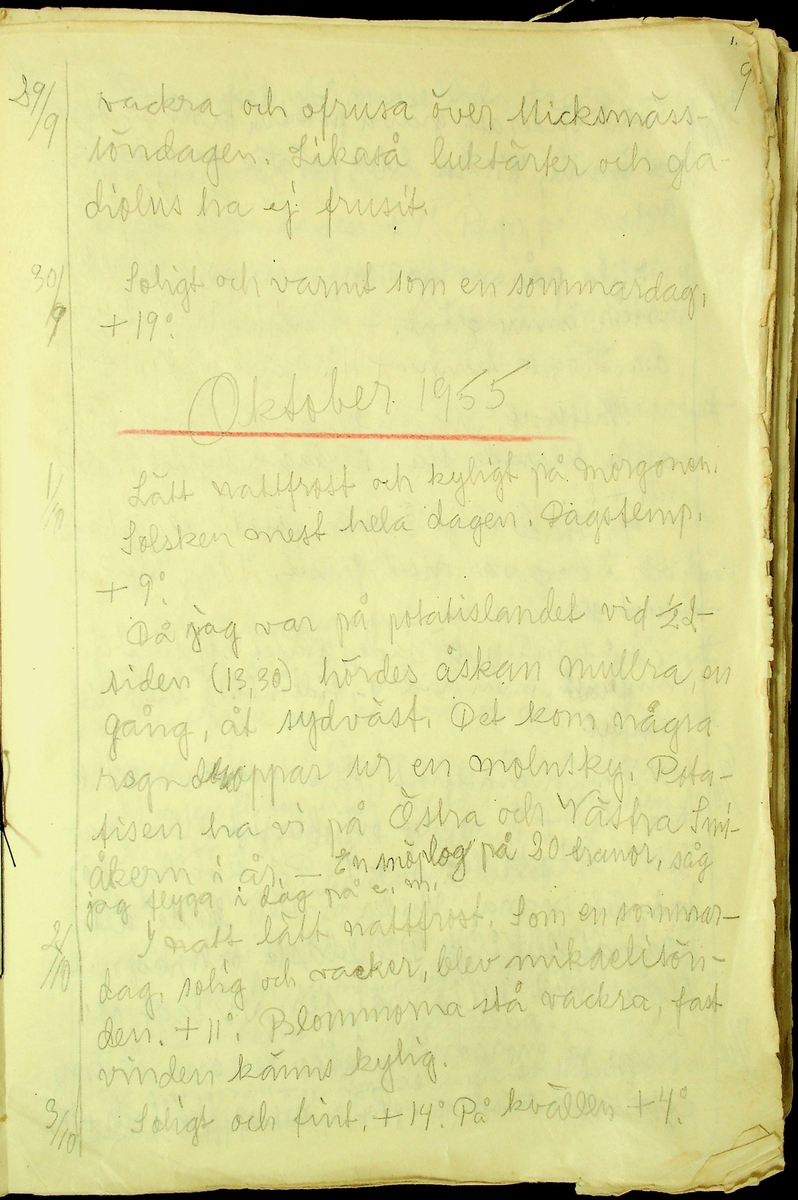 1.
9
29/9 vackra och ofrusa över Micksmäss-
söndagen. Likaså luktärter och gla-
diolus ha ej frusit.
30/9 Soligt och varmt som en sommardag,
+19°.
Oktober 1955
1/10 Lätt nattfrost och kyligt på morgonen.
Solsken mest hela dagen. Dagstemp.
+9°.
Då jag var på potatislandet vid ½2-
tiden (13,30) hördes åskan mullra, en
gång, åt sydväst. Det kom några
regndroppar ur en molnsky. Pota-
tisen ha vi på Östra och Västra
åkern i år. — En på 30 tranor, såg
jag flyga i dag på e. m.
2/10 I natt lätt nattfrost. Som en sommar-
dag, solig och vacker, blev mikaelisön-
den. +11°. Blommorna stå vackra, fast
vinden känns kylig.
3/10 Soligt och fint, +14°. På kvällen +4°.